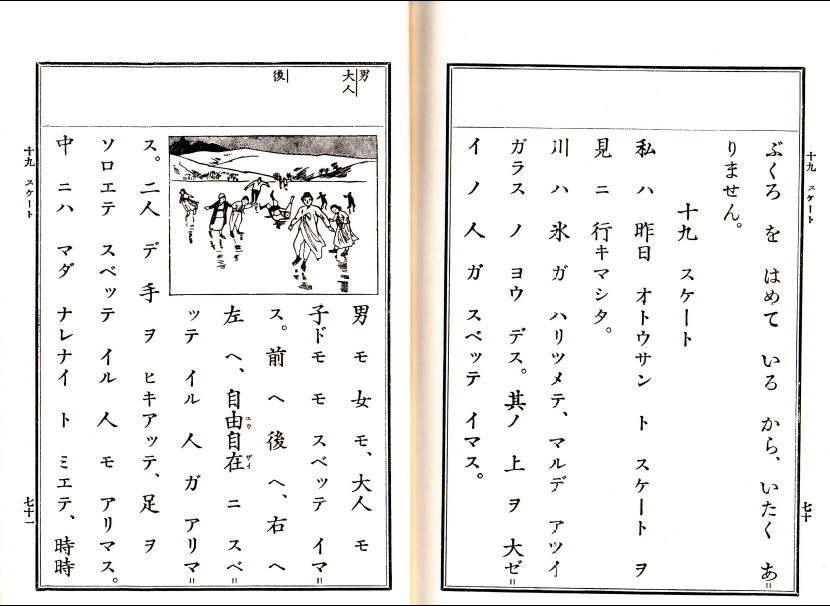 十九 スケート
七十
ぶくろ を はめて いる から、いたく あ＝
りません。
十九 スケート
私 ハ 昨日 オトウサン ト スケート ヲ
見 ニ 行キマシタ。
川 ハ 氷 ガ ハリツメテ、マルデ アツイ
ガラス ノ ヨウ デス。其ノ 上 ヲ 大ゼ＝
イ ノ 人 ガ スベッテ イマス。
男
大人
後
男 モ 女 モ、大人 モ
子ドモ モ スベッテ イマ＝
ス。前 ヘ 後 ヘ、右 ヘ
左 ヘ、自由自在 ニ スベ＝
ユウ ザイ
ッテ イル 人 ガ アリマ＝
ス。二人 デ 手 ヲ ヒキアッテ、足 ヲ
ソロエテ スベッテ イル 人 モ アリマス。
中 ニハ マダ ナレナイ ト ミエテ、時時
十九 スケート
七十一